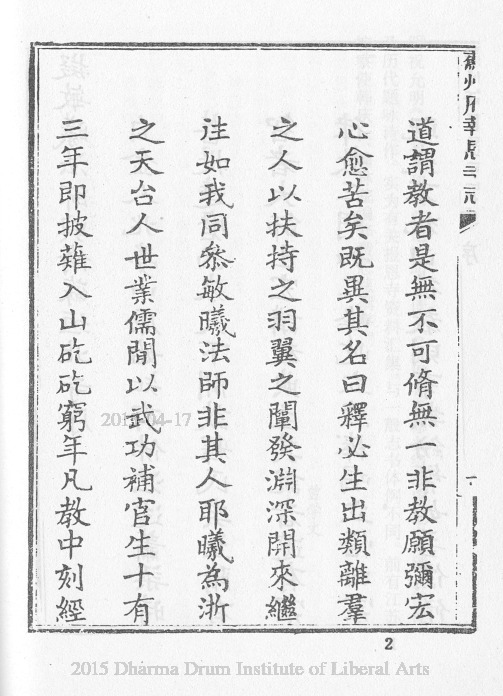 道謂教者是無不可脩無一非教願彌宏
心愈苦矣既異其名曰釋必生出類離羣
之人以扶持之羽翼之闡發淵深開來繼
往如我同叅敏曦法師非其人耶曦為浙
之天台人世業儒間以武功補官生十有
三年即披薙入山矻矻窮年凡教中刻經
2
2015 Dharma Drum Institute of Liberal Arts